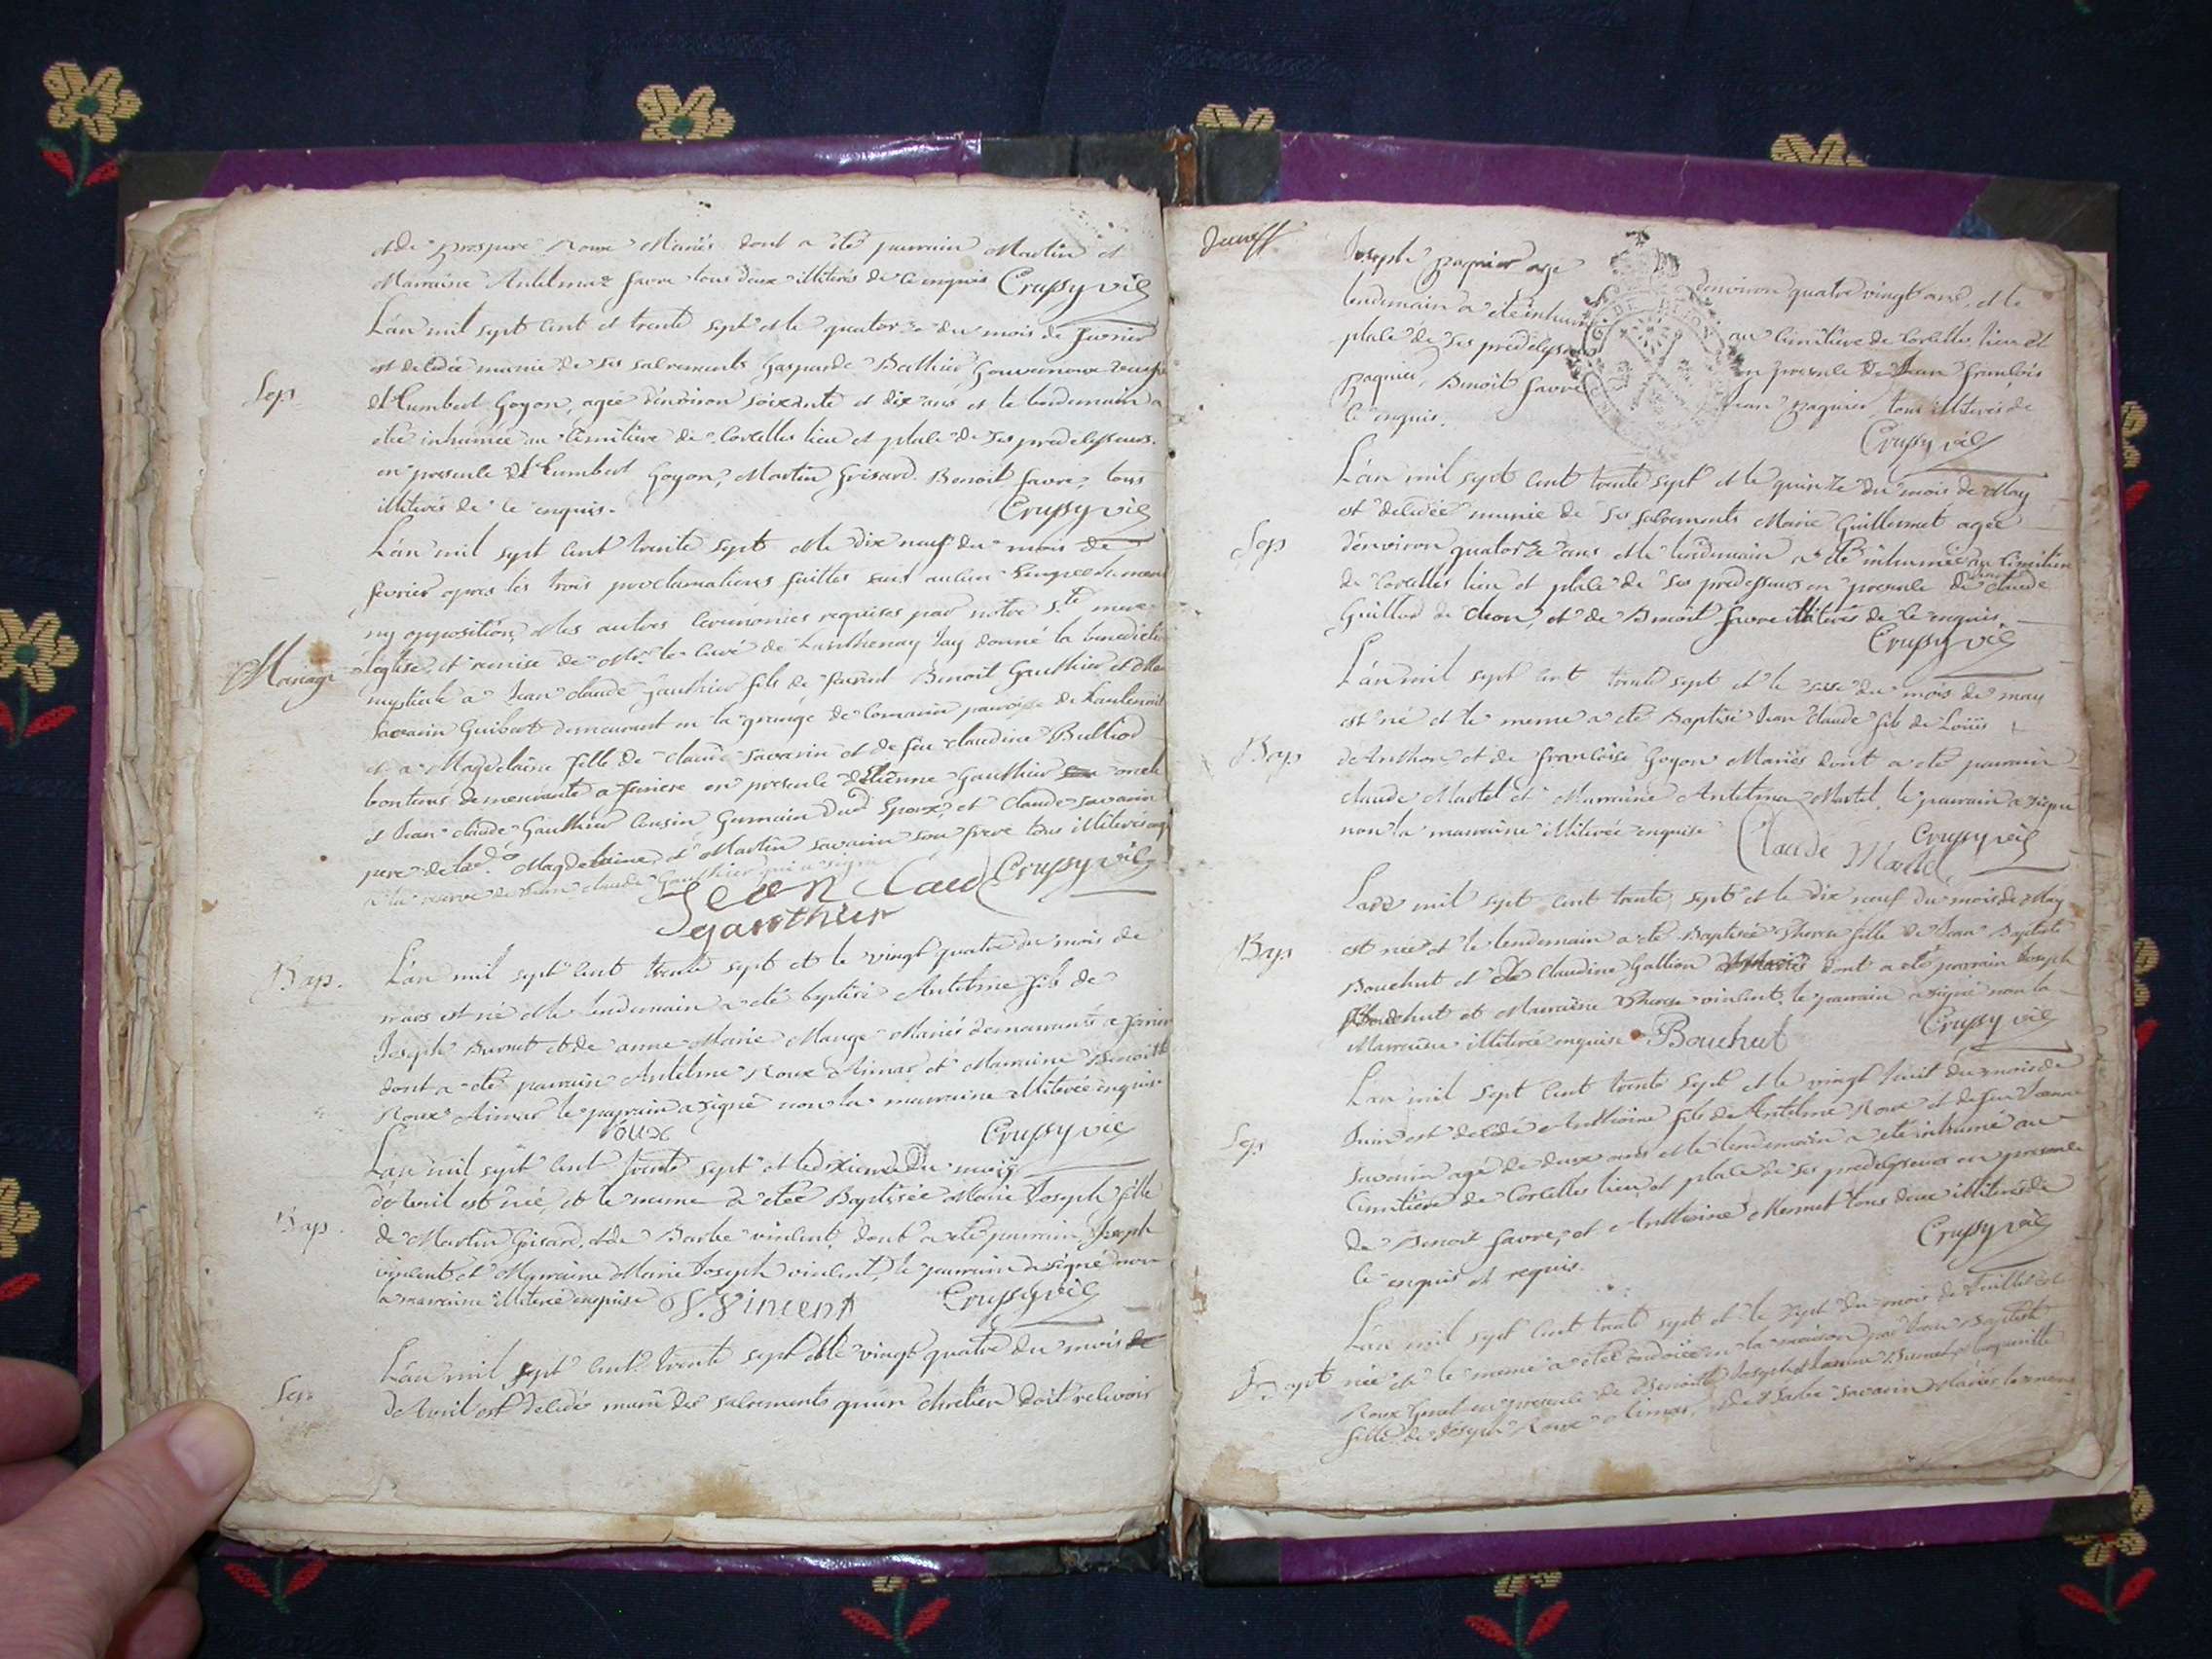 et de prospere Roux Mariés dont a été parrain Martin et
Marraine Antelmaz favre tous deux illiterés de ce enquis Crussy vic
L'an mil sept cent et trente sept et le quatorze du mois de fevrier
Sep.
est decedée munie de ses sacrements Gasparde Bathier Gouvernoux
d'humbert Goyon, agée d'environ soixante et dix ans et le lendemain a
été inhumée au cimitiere de Corcelles lieu et place de ses predecesseurs.
en presence d'humbert Goyon, Martin Grisard. Benoit favre, tous
illiterés de ce enquis.
Crussy vic
L'an mil sept cent trente sept et le dix neuf du mois de
fevrier apres les trois proclamations faittes sans aucun
ny opposition, et les autres ceremonies requises par notre Ste mere
Mariage
l'eglise, et remise de Mr le curé de Lanthenay jay donné la benediction
à Jean claude Gauthier fils de Benoit Gauthier et
Guibert demeurant en la grange de
et a Magdelaine fille de claude savarin et de feu claudine Bulliod
demeurante a en presence d'Etienne Gauthier oncle
et Jean claude Gauthier cousin Germain dud Epoux, et claude savarin
pere de lad. Magdelaine, et Martin savarin son frere tous illiterés
a la reserve de Jean claude Gauthier qui a signé
Jean Claude Crussy vic
gauthier
Bap.
L'an mil sept cent trente sept et le vingt quatre du mois de
mars est né et le lendemain a été baptisé Antelme fils de
Joseph Burnet et de anne Marie Mange Mariés demeurants a
dont a été parrain Antelme Roux Aimar et Marraine Benoitte
Roux Aimar le parrain a signé non la marraine illiterée enquise
roux Crussy vic
L'an mil sept cent trente sept et le dixieme du mois
Bap.
est née, et le meme a étée Baptisée Marie Joseph fille
de Martin Grisard, et de Barbe vincent, dont a été parrain Joseph
vincent et Marraine Marie Joseph vincent, le parrain a signé non
la marraine illiterée enquise J. Vincent Crussy vic
L'an mil sept cent trente sept et le vingt quatre du mois de
Sep.
d'Avril est decedé muni des sacrements qu'un chretien doit recevoir
Joseph paquier agé d'environ quatre vingt ans, et le
lendemain a été inhumé au cimitiere de Corcelles lieu et
place de ses predecesseurs en presence de Jean françois
paquier, Benoit favre Jean paquier tous illiterés de
ce enquis.
Crussy vic
L'an mil sept cent trente sept et le quinze du mois de May
est decedée munie de ses sacrements Marie Guillermet agée
Sep.
d'environ quatorze ans et le lendemain a été inhumée au cimitiere
de Corcelles lieu et place de ses predecesseurs en presence de claude
Guillod de cleon, et de Benoit favre illiterés de ce enquis
Crussy vic
L'an mil sept cent trente sept et le du mois de may
est né et le meme a été Baptisé Jean claude fils de Loüis
Bap.
de Anthon et de françoise Goyon Mariés dont a été parrain
claude Martel et Marraine Antelma Martel, le parrain a signé
non la marraine illiterée enquise Claude Martel Crussy vic
L'an mil sept cent trente sept et le dix neuf du mois de May
Bap.
est née et le lendemain a été Baptisée Therese fille de Jean Baptiste
Bouchut et de claudine Gallion Mariés dont a été parrain Joseph
Bouchut et Marraine Therese vincent. le parrain a signé non la
Marraine illiterée enquise Bouchut Crussy vic
L'an mil sept cent trente sept et le vingt huit du mois de
Sep.
Juin est decedé Anthoine fils de Antelme Roux et de feu Jeanne
savarin agé de deux ans et le lendemain a été inhumé au
cimitiere de Corcelles lieu et place de ses predecesseurs en presence
de Benoit favre, et Anthoine Mermet tous deux illiterés de
ce enquis et requis.
Crussy vic
L'an mil sept cent trente sept et le sept du mois de Juillet est
Bapt
née et le meme a étée ondoiée en la maison par Jean Baptiste
Roux en presence de Benoitte Joseph et Jeanne Burnet laquelle
fille de Joseph Roux Aimar, et de Barbe savarin Mariés